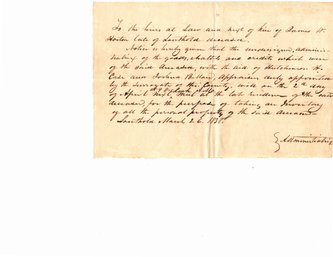 To the heirs at Law and next of kin of James W.
Horton late of Southold deceased.
Notice is hereby given that the undersigned, admini-
strators of the goods, chattels and credits which were
of the said deceased, with the aid of Hutchinson H.
Case and Joshua Hallock, Appraisers duly appointed
by the Surrogate of the County, will on the 2nd day
of April next, meet at the late residence of the said
deceased, for the purpose of taking an Inventory
of all the personal property of the said deceased
Southold March 26, 183
Administratrix